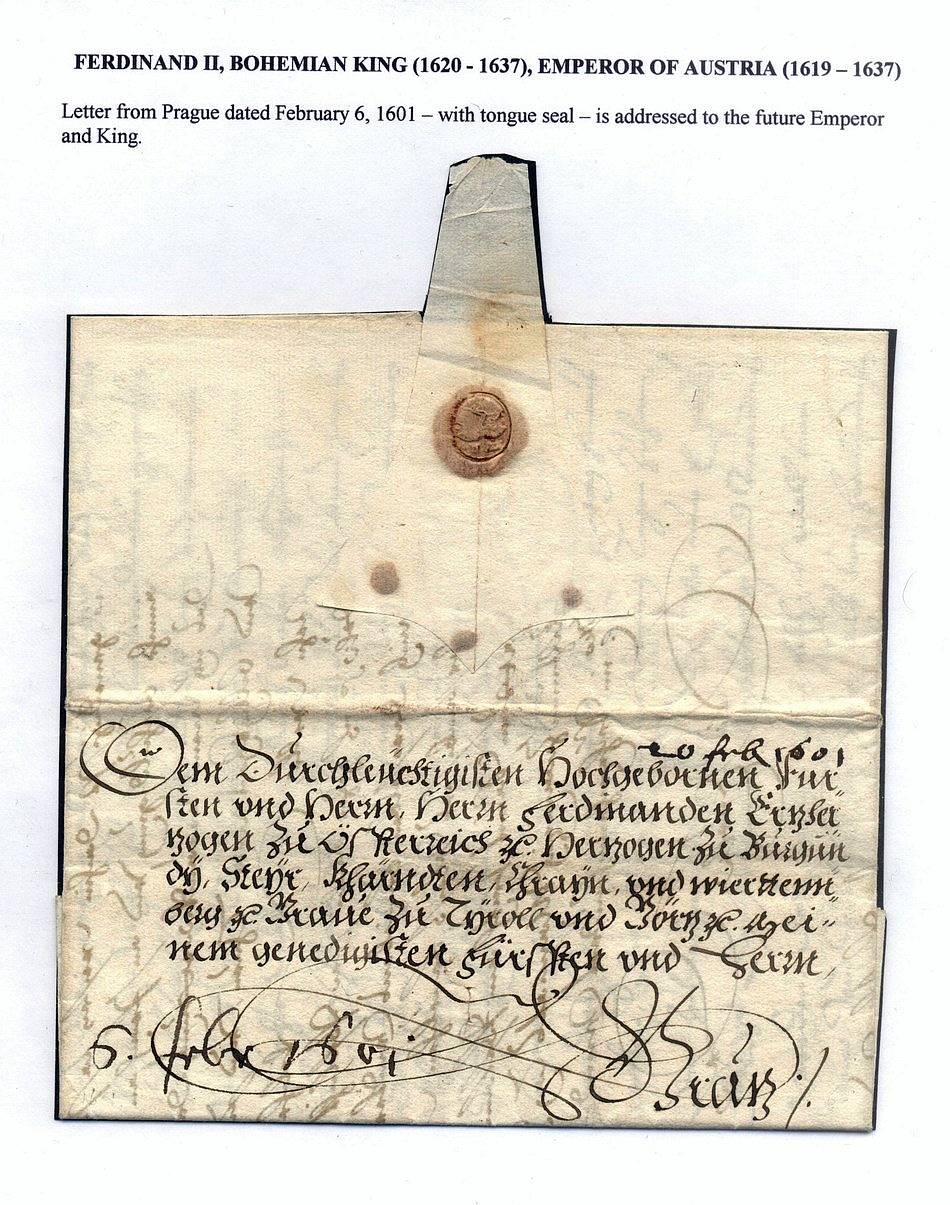 FERDINAND II, BOHEMIAN KING (1620 - 1637), EMPEROR OF AUSTRIA (1619 – 1637)
Letter from Prague dated February 6, 1601 – with tongue seal – is addressed to the future Emperor
and King.
20 feb 1601
Dem Durchleüchtigisten Hochgebornen Für
sten vnd Herrn, Herrn Ferdinanden Ertzher
tzogen zu Össterreich &c. Hertzogen zu Burgun
dÿ, Steÿr, Khärndten, Chrayn, vnd wierttenn
berg &c. Graue zu Tÿroll vnd Görtz &c. Mei=
nem genedigisten Fürssten vnd Herrn,
6. febr 1601
Gratz